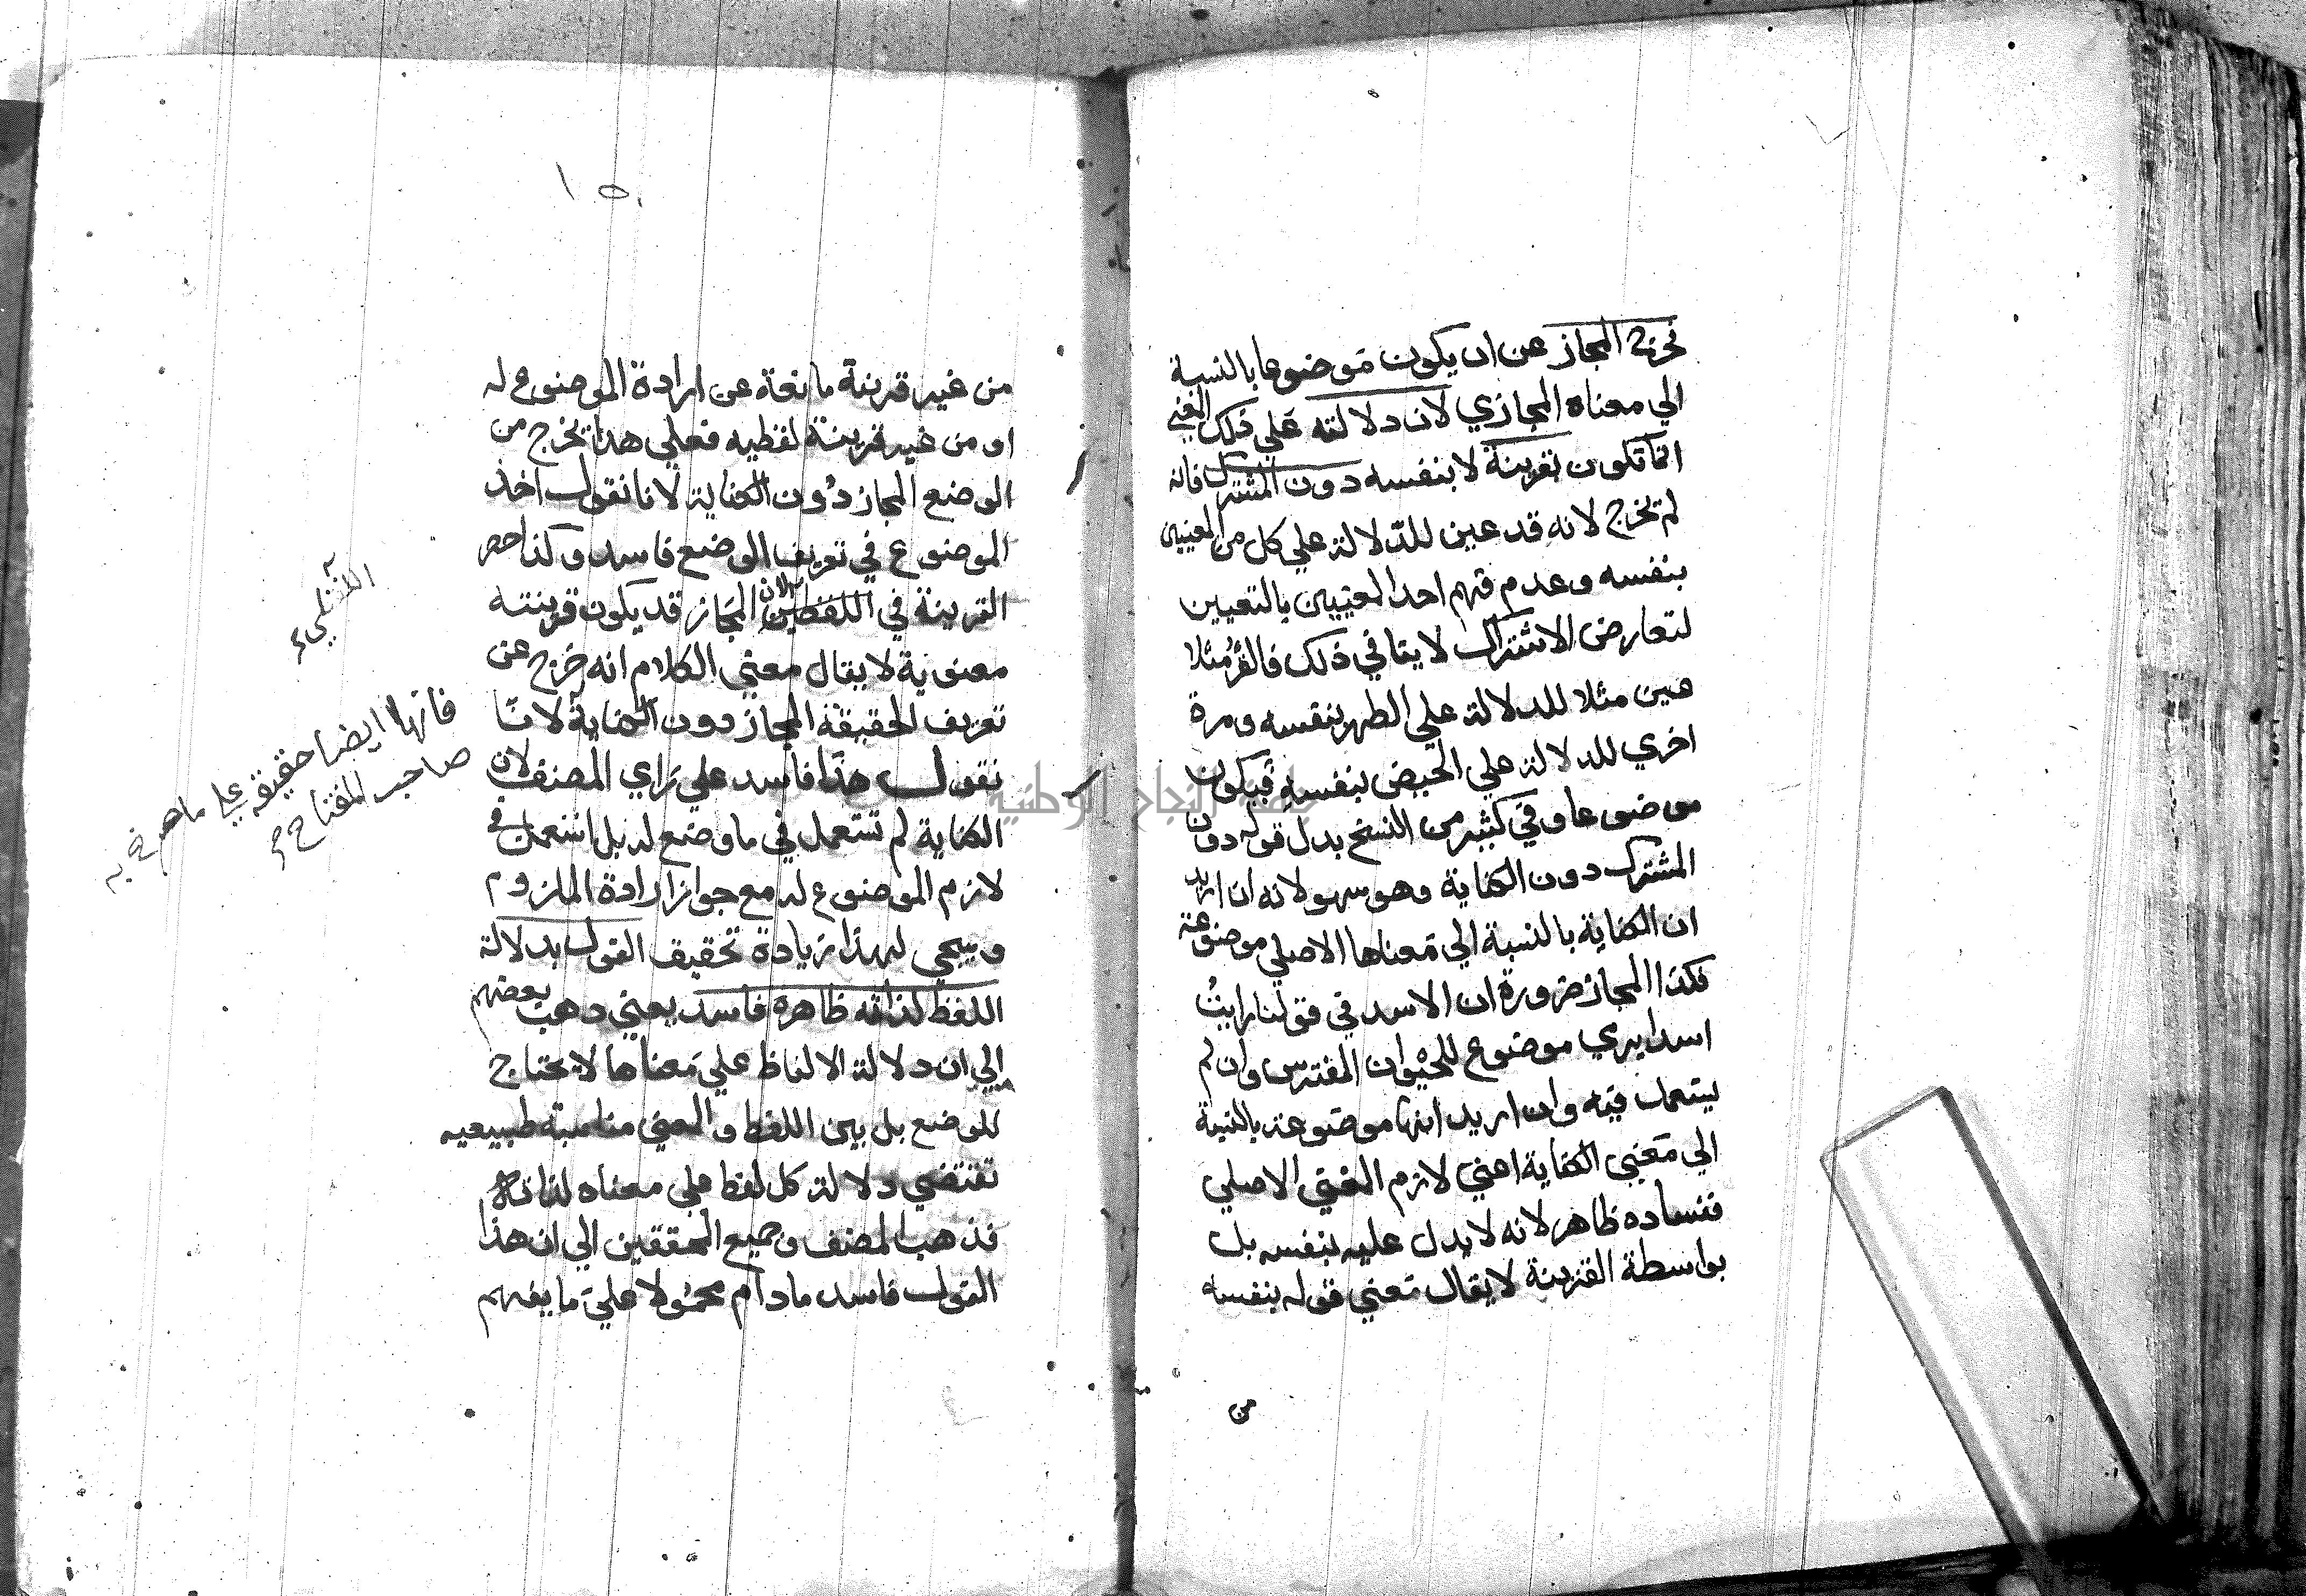 فخرج المجاز عن ان يكون موضوعا بالنسبة
الي معناه المجازي لان دلالته علي ذلك المعني
انما تكون بقرينة لا بنفسه دون المشترك فانه
لم يخرج لانه قد عين للدلالة علي كل من المعنيين
بنفسه وعدم فهم احد المعنيين بالتعيين
لتعارض الاشتراك لا ينافي ذلك فالقرء مثلا
عين مثلا للدلالة علي الطهر بنفسه ومرة
اخري للدلالة علي الحيض بنفسه فيكون
موضوعا وفي كثير من النسخ بدل قوله دون
المشترك دون الكناية وهو سهو لانه ان اريد
ان الكناية بالنسبة الي معناها الاصلي موضوعة
فكذا المجاز ضرورة ان الاسد في قولنا رايتُ
اسدا يرمي موضوع للحيوان المفترس وان لم
يستعمل فيه وان اريد انها موضوعة بالنسبة
الي معني الكناية اعني لازم المعني الاصلي
ففساده ظاهر لانه لا يدل عليه بنفسه بل
بواسطة القرينة لا يقال معني قوله بنفسه
من
١٥
من غير قرينة مانعة عن ارادة الموضوع له
او من غير قرينة لفظيه فعلي هذا يخرج من
الوضع المجاز دُون الكناية لانا نقول اخذ
الموضوع في تعريف الوضع فاسد وكذا حصر
القرينة في اللفظي لان المجاز قد يكون قرينته
معنوية لا يقال معني الكلام انه خرج عن
تعريف الحقيقة المجاز دون الكناية لانّا
نقول هذا فاسد علي راي المصنف لان
الكناية لم تستعمل في ما وضع له بل استعملت في
لازم الموضوع له مع جواز ارادة الملزوم
وسيجي لهذا زيادة تحقيق القول بدلالة
اللفظ لذاته ظاهره فاسد يعني ذهب بعضهم
الي ان دلالة الالفاظ علي معناها لا يحتاج
للوضع بل بين اللفظ والمعني مناسبة طبيعيه
تقتضي دلالة كل لفظ علي معناه لذاته
فذهب المصنف وجميع المحققين الي ان هذا
القول فاسد مادام محمولا علي ما يفهم
فانها ايضا حقيقه علي ما صرح به
صاحب المفتاح